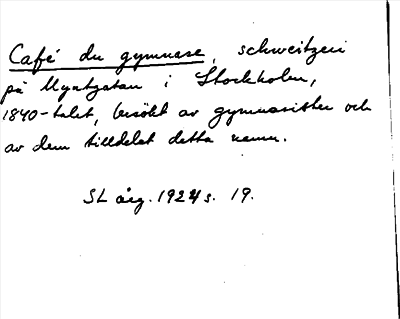 Café du gymnase, schweitzeri
på Myntgatan i Stockholm,
1840-talet, besökt av gymnasister och
av dem tilldelat detta namn.
SL årg. 1924 s. 19.